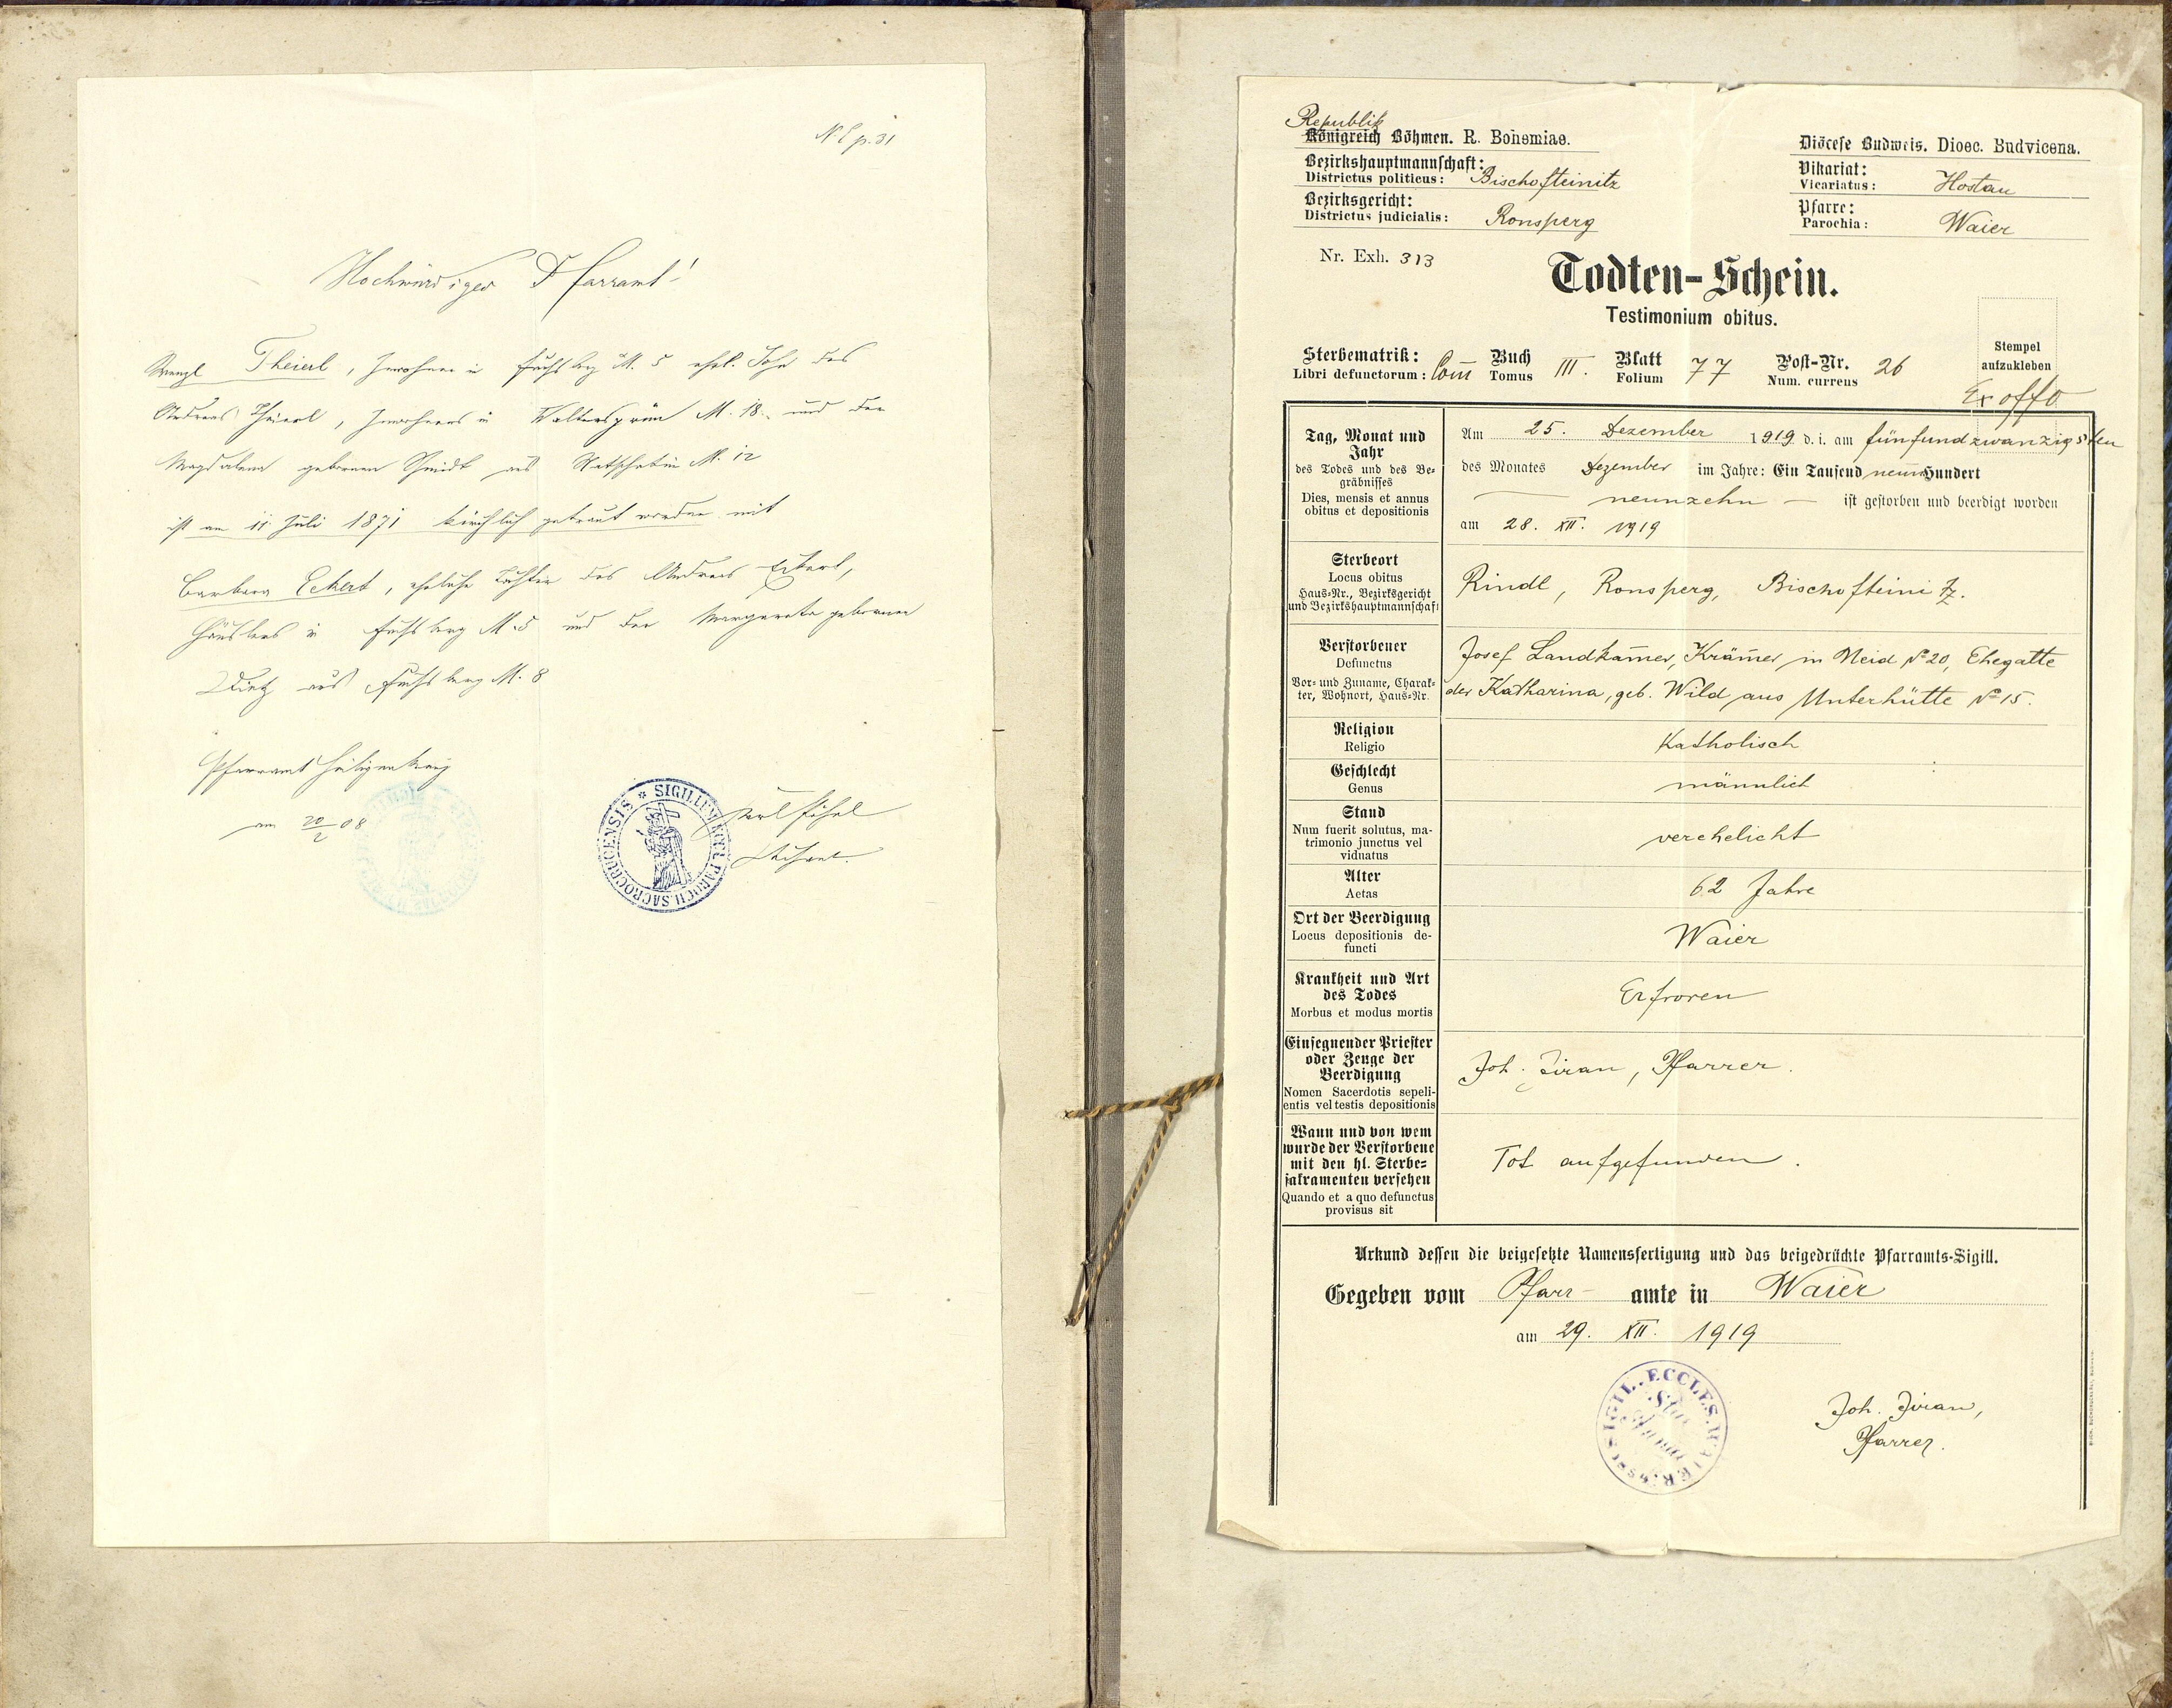 N. E p. 31
Hochwürdiges Pfarramt!
Wenzl Theierl, Inwohner in Fuchsberg N. 5 ehel. Sohn des
Andreas Theierl, Inwohners in Waltersgrün N. 18. und der
Magdalena geborenen Schmidt aus N. 12
ist am 11 Juli 1871 kirchlich getraut worden mit
Barbara Eckert, eheliche Tochter des Andreas Eckert,
Häuslers in Fuchsberg N. 5 und der Margareta geborenen
Dietz aus Fuchsberg N. 8
Pfarramt Heiligenkreuz
am 20/2 08
SIGILLUM ECCL. PAROCH. SACROCRUCENSIS
Karl
Dechant.
Republik
Königreich Böhmen. R. Bohemiae.
Bezirkshauptmannschaft:
Districtus politicus: Bischofteinitz
Bezirksgericht:
Districtus judicialis: Ronsperg
Diöcese Budweis. Dioec. Budvicena.
Vikariat:
Vicariatus: Hostau
Pfarre:
Parochia: Waier
Nr. Exh. 313
Todten-Schein.
Testimonium obitus.
Stempel
aufzukleben
Ex offo
Sterbematrik: Buch Blatt Post-Nr.
Libri defunctorum: Com Tomus III. Folium 77 Num. currens 26
Tag, Monat und
Jahr
des Todes und des Be-
gräbnisses
Dies, mensis et annus
obitus et depositionis
Am 25. Dezember 1919 d. i. am fünfundzwanzigsten
des Monates Dezember im Jahre: Ein Tausend neun Hundert
neunzehn ist gestorben und beerdigt worden
am 28. XII. 1919
Sterbeort
Locus obitus
Haus-Nr., Bezirksgericht
und Bezirkshauptmannschaft
Rindl, Ronsperg, Bischofteinitz.
Verstorbener
Defunctus
Vor- und Zuname, Charak-
ter, Wohnort, Haus-Nr.
Josef Landkam̄er, Kräm̄er in Neid No 20, Ehegatte
der Katharina, geb. Wild aus Unterhütte No 15.
Religion
Religio
Katholisch
Geschlecht
Genus
männlich
Stand
Num fuerit solutus, ma-
trimonio junctus vel
viduatus
verehelicht
Alter
Aetas
62 Jahre
Ort der Beerdigung
Locus depositionis de-
functi
Waier
Krankheit und Art
des Todes
Morbus et modus mortis
Erfroren
Einsegnender Priester
oder Zeuge der
Beerdigung
Nomen Sacerdotis sepeli-
entis vel testis depositionis
Joh. Jiran, Pfarrer.
Wann und von wem
wurde der Verstorbene
mit den hl. Sterbe-
sakramenten versehen
Quando et a quo defunctus
provisus sit
Tot aufgefunden.
Urkund dessen die beigesetzte Namensfertigung und das beigedrückte Pfarramts-Sigill.
Gegeben vom Pfarr- amte in Waier
am 29. XII. 1919
SIGIL. ECCLES. WAIER.
Joh. Jiran,
Pfarrer.